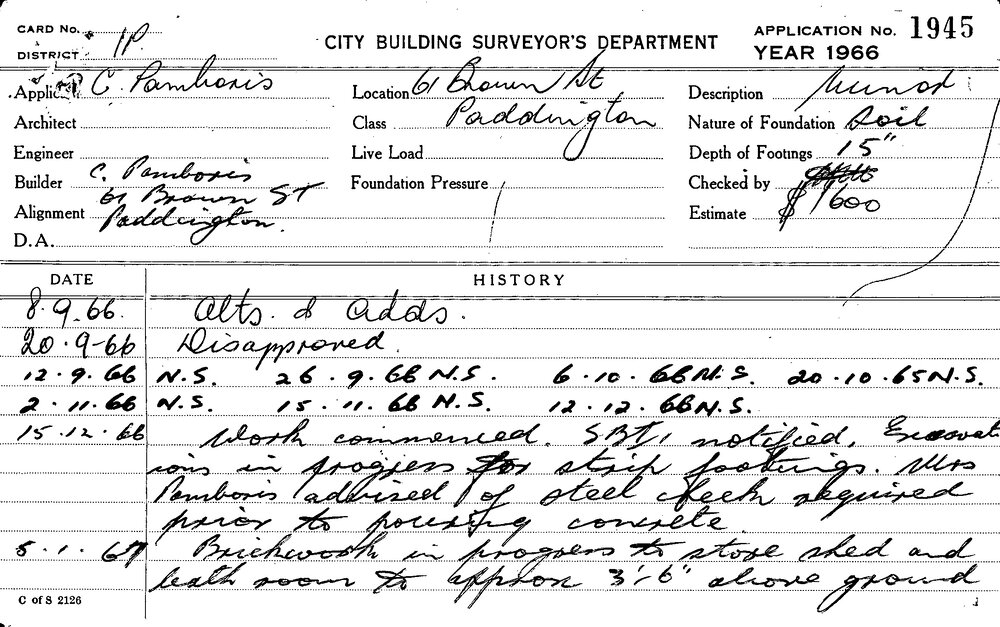 CARD No.
DISTRICT 1P.
CITY BUILDING SURVEYOR'S DEPARTMENT
APPLICATION No. 1945
YEAR 1966
Applic C. Pamboris
Location 61 Brown St
Description Minor
Architect
Class Paddington
Nature of Foundation Soil
Engineer
Live Load
Depth of Footings 15"
Builder C. Pamboris
Foundation Pressure
Checked by
61 Brown St
Alignment Paddington.
Estimate $1600
D.A.
DATE HISTORY
8.9.66. Alts. & Adds.
20.9-66 Disapproved.
12.9.66 N.S. 26.9.66 N.S. 6.10.66 N.S. 20.10.65 N.S.
2.11.66 N.S. 15.11.66 N.S. 12.12.66 N.S.
15.12.66 Work commenced. notified. Excavat
ions in progress for strip footings. Mrs
Pamboris advised of steel check required
prior to pouring concrete.
5.1.67 Brickwork in progress to store shed and
bath room to approx 3'-6" above ground
C of S 2126